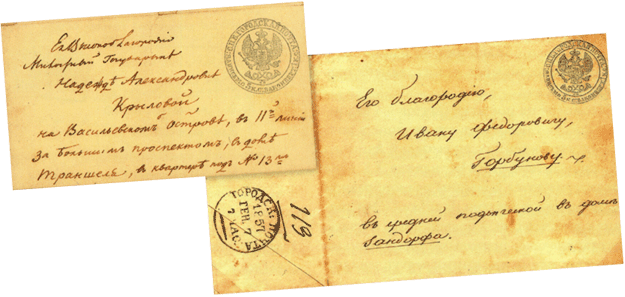 Ея Высокоблагородiю
Милостивой Государынѣ
Надеждѣ Александровнѣ
Крыловой
на Васильевскомъ Островѣ, въ 11й линiи
за большимъ проспектомъ, въ домѣ
Траншеля, въ квартирѣ подъ № 13мъ
Его благородiю,
Ивану Федоровичу,
Горбунову
въ средней подъяческой въ домѣ
Гандорфа.
113
ГОРОДСК. ПОЧТА
1857
ГЕН. 7
7 ЧАС.